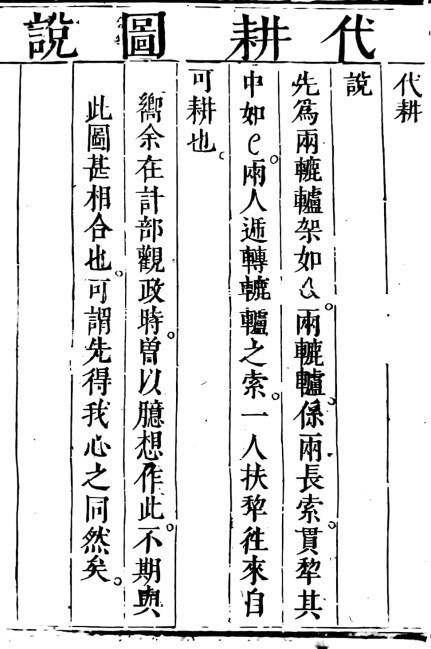 代耕圖說
代耕
說
先為兩轆轤架如a。兩轆轤。係兩長索。貫犂其
中如e。兩人遞轉轆轤之索。一人扶犂徃來自
可耕也。
嚮余在計部觀政時。曽以臆想作此。不期與
此圖甚相合也。可謂先得我心之同然矣。